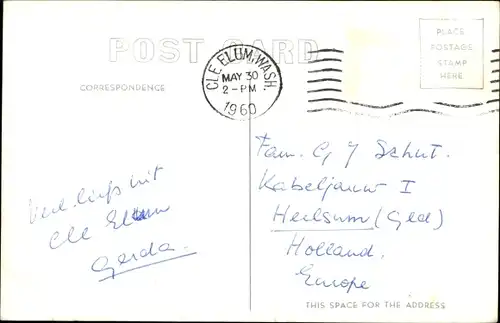 POST CARD
CLE ELUM, WASH.
MAY 30
2-PM
1960
PLACE
POSTAGE
STAMP
HERE
CORRESPONDENCE
Veel liefs uit
Cle Elum
Gerda.
Fam. G J Schut.
Kabeljauw I
Heelsum (Geld)
Holland.
Europe
THIS SPACE FOR THE ADDRESS